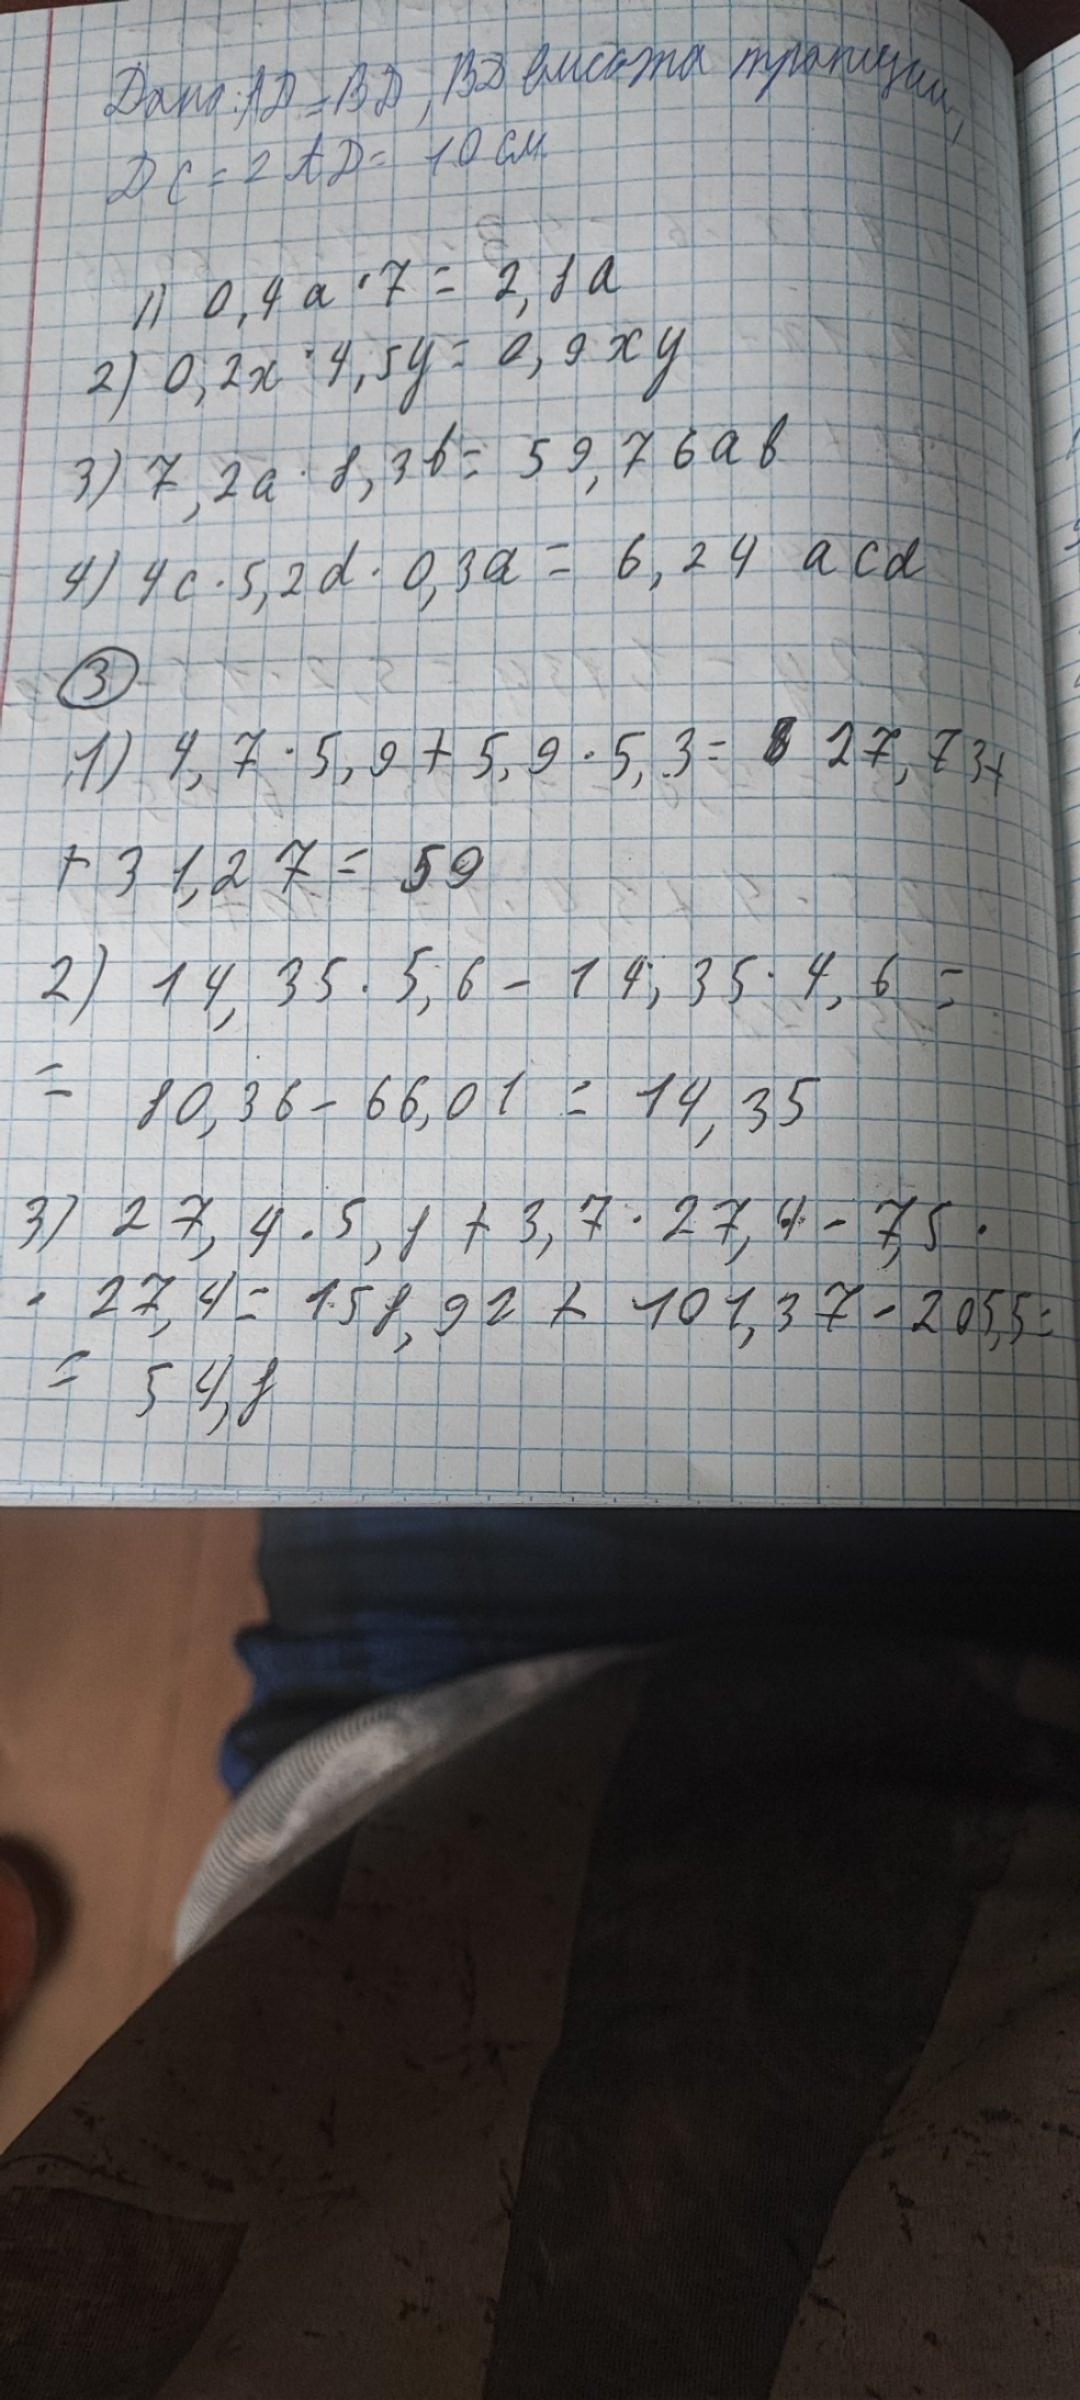 Дано: AD = BD, BD высота трапеции,
DC = 2 AD = 10 см
1) 0,4a · 7 = 2,8a
2) 0,2x · 4,5y = 0,9xy
3) 7,2a · 8,3b = 59,76ab
4) 4c · 5,2d · 0,3a = 6,24 acd
3
1) 4,7 · 5,9 + 5,9 · 5,3 = 27,73+
+ 31,27 = 59
2) 14,35 · 5,6 - 14,35 · 4,6 =
= 80,36 - 66,01 = 14,35
3) 27,4 · 5,8 + 3,7 · 27,4 - 7,5 ·
· 27,4 = 158,92 + 101,37 - 205,5 =
= 54,8